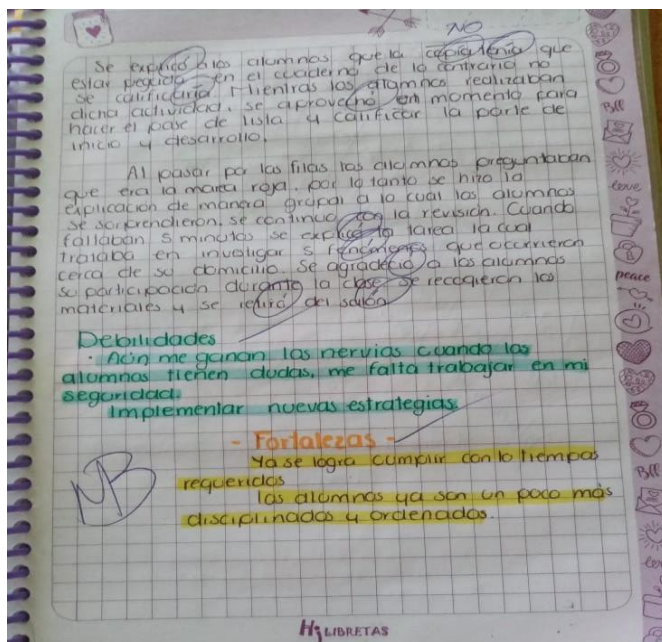 NO
Se explicó a los alumnos que la copia tenia que
estar pegada en el cuaderno de lo contrario no
se calificaria Mientras los alumnos realizaban
dicha actividad, se aprovechó un momento para
hacer el pase de lista y calificar la parte de
inicio y desarrollo.
Al pasar por las filas los alumnos preguntaban
que era la marea roja, por lo tanto se hizo la
explicación de manera grupal a lo cual los alumnos
se sorprendieron, se continuo con la revisión. Cuando
faltaban 5 minutos se explicó la tarea la cual
trataba en investigar 5 fenómenos que ocurrieron
cerca de su domicilio. Se agradeció a los alumnos
su participación durante la clase, se recogieron los
materiales y se retiró del salón.
Debilidades
· Aún me ganan los nervios cuando los
alumnos tienen dudas, me falta trabajar en mi
seguridad.
Implementar nuevas estrategias.
- Fortalezas -
Ya se logra cumplir con lo tiempos
requeridos
los alumnos ya son un poco más
disciplinados y ordenados.
MB
LIBRETAS
BFF
love
peace
BFF
love